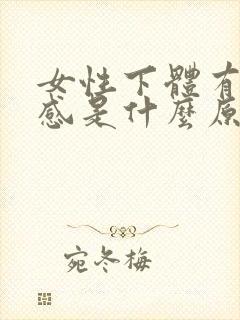 女性下體有
感是什麼原
宛冬梅